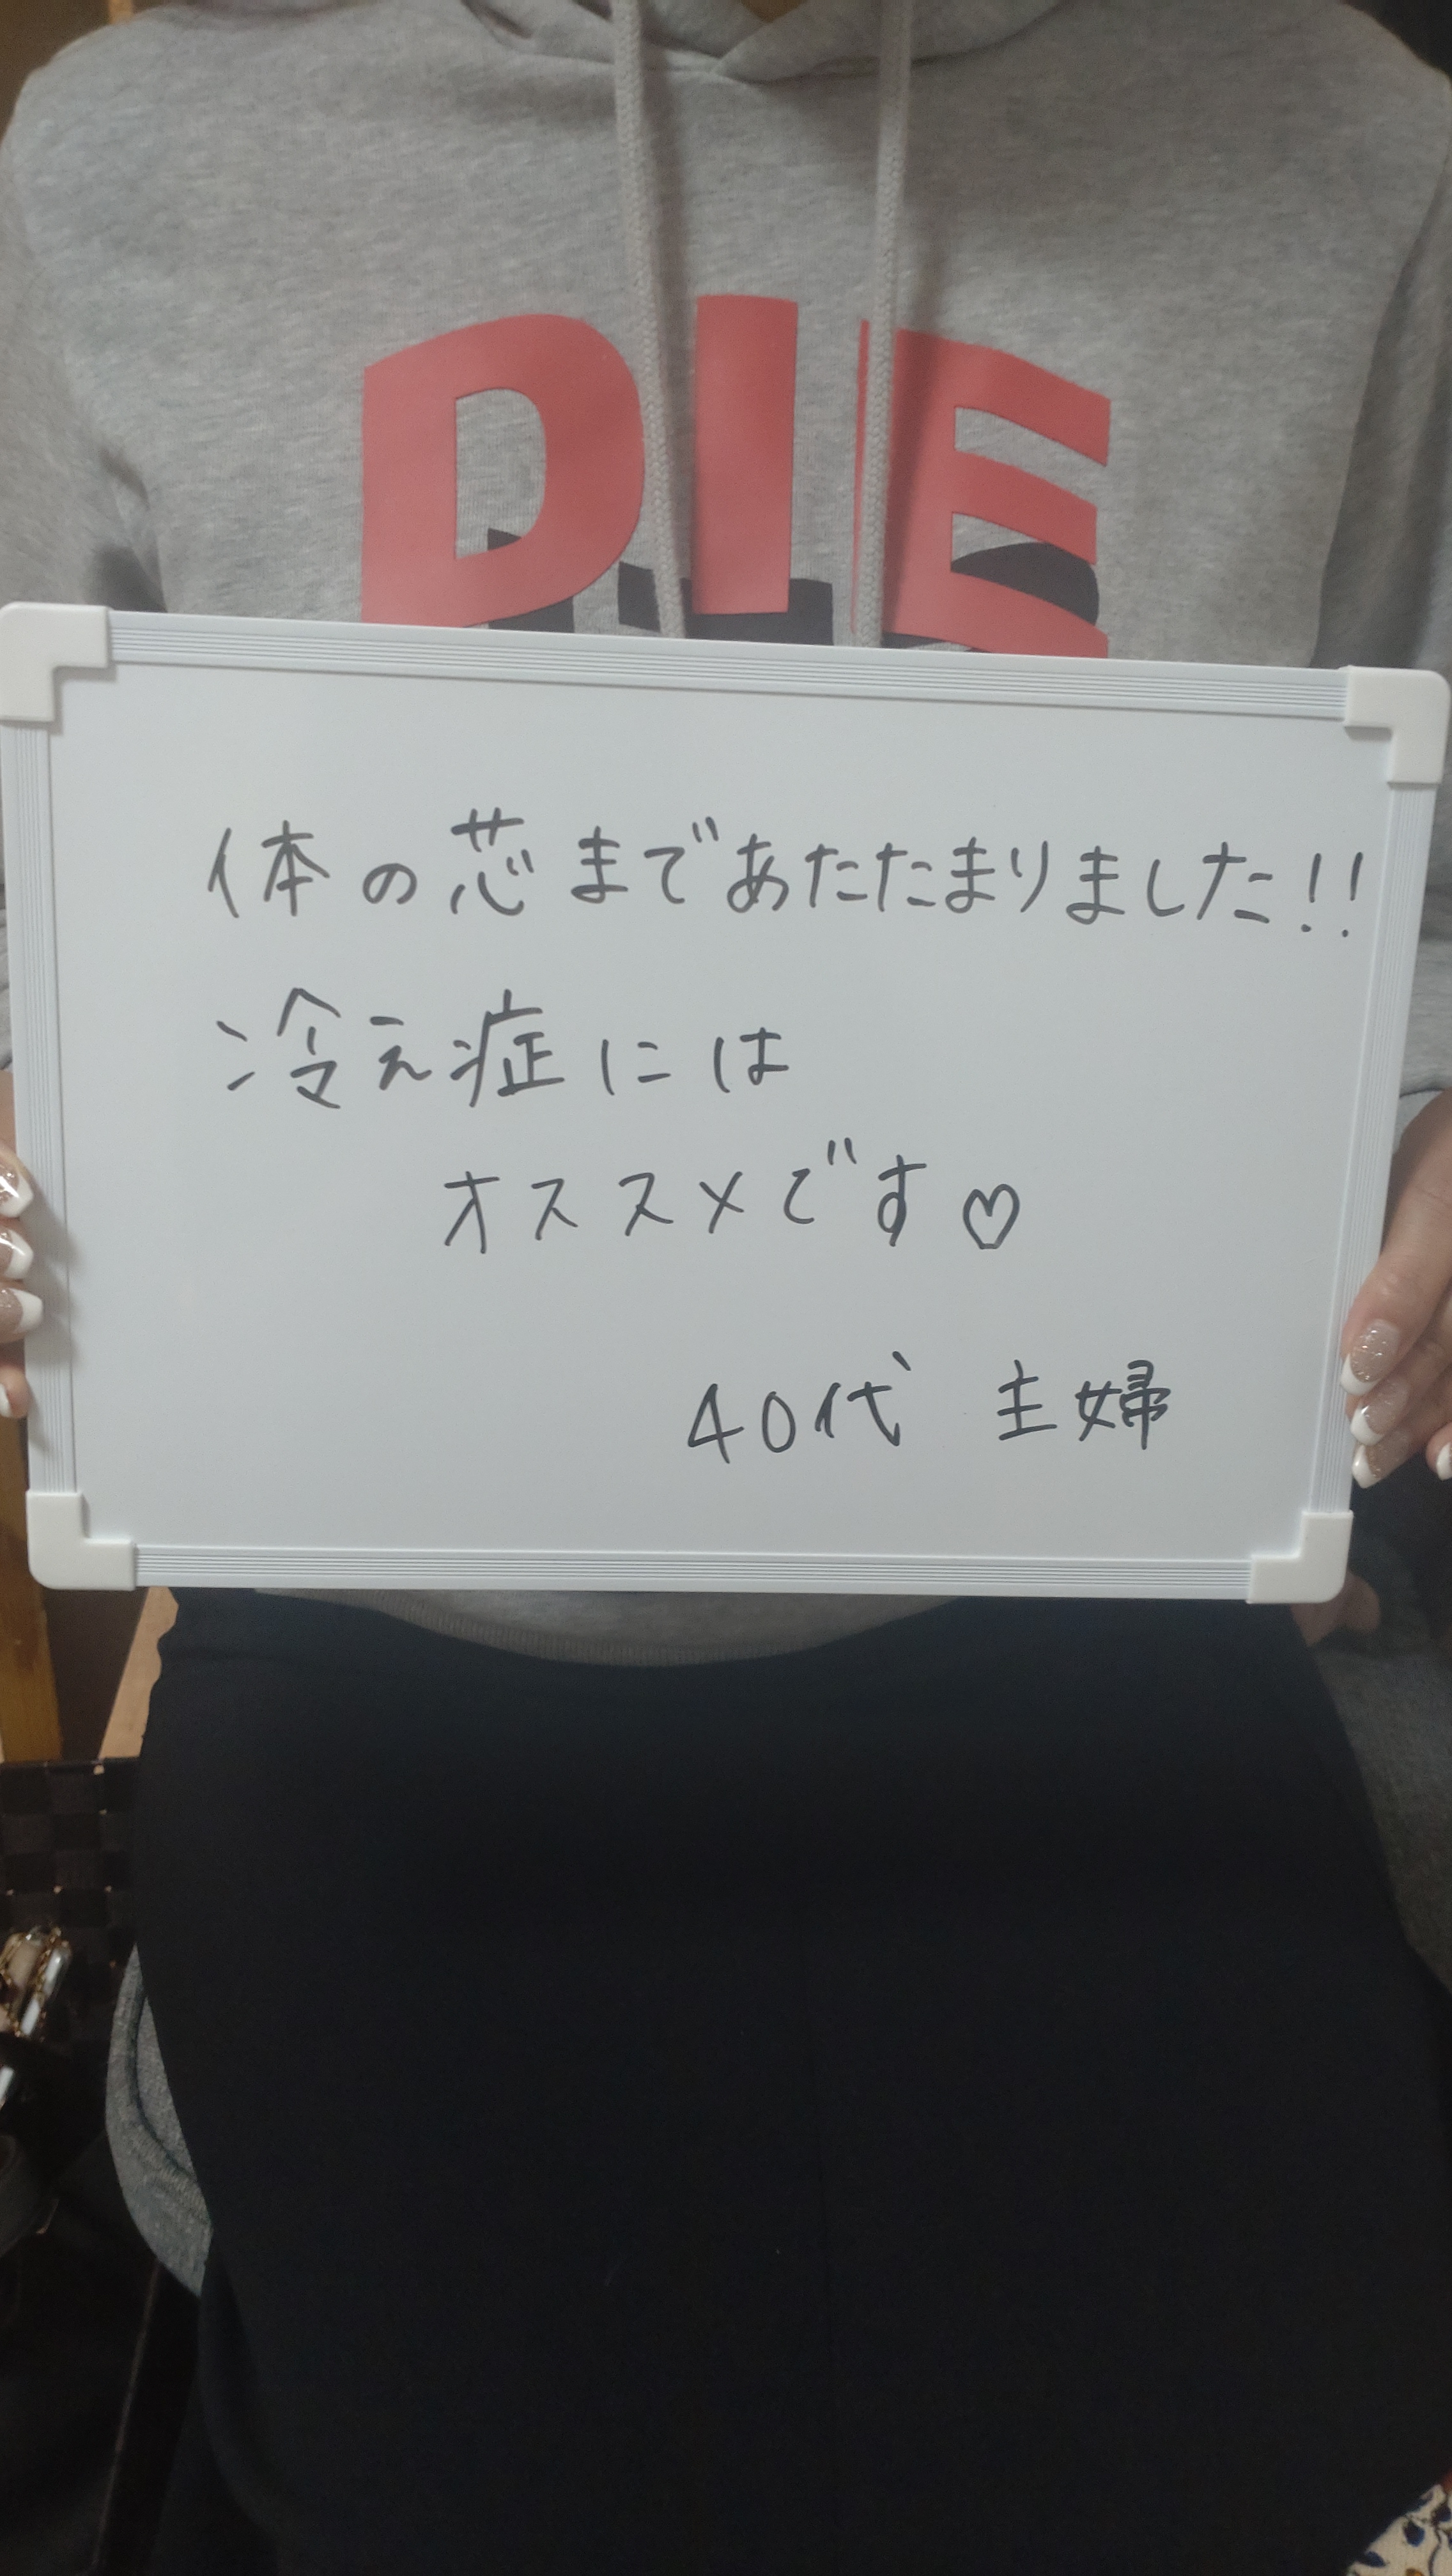 DIE
体の芯まであたたまりました!!
冷え症には
オススメです♡
40代 主婦